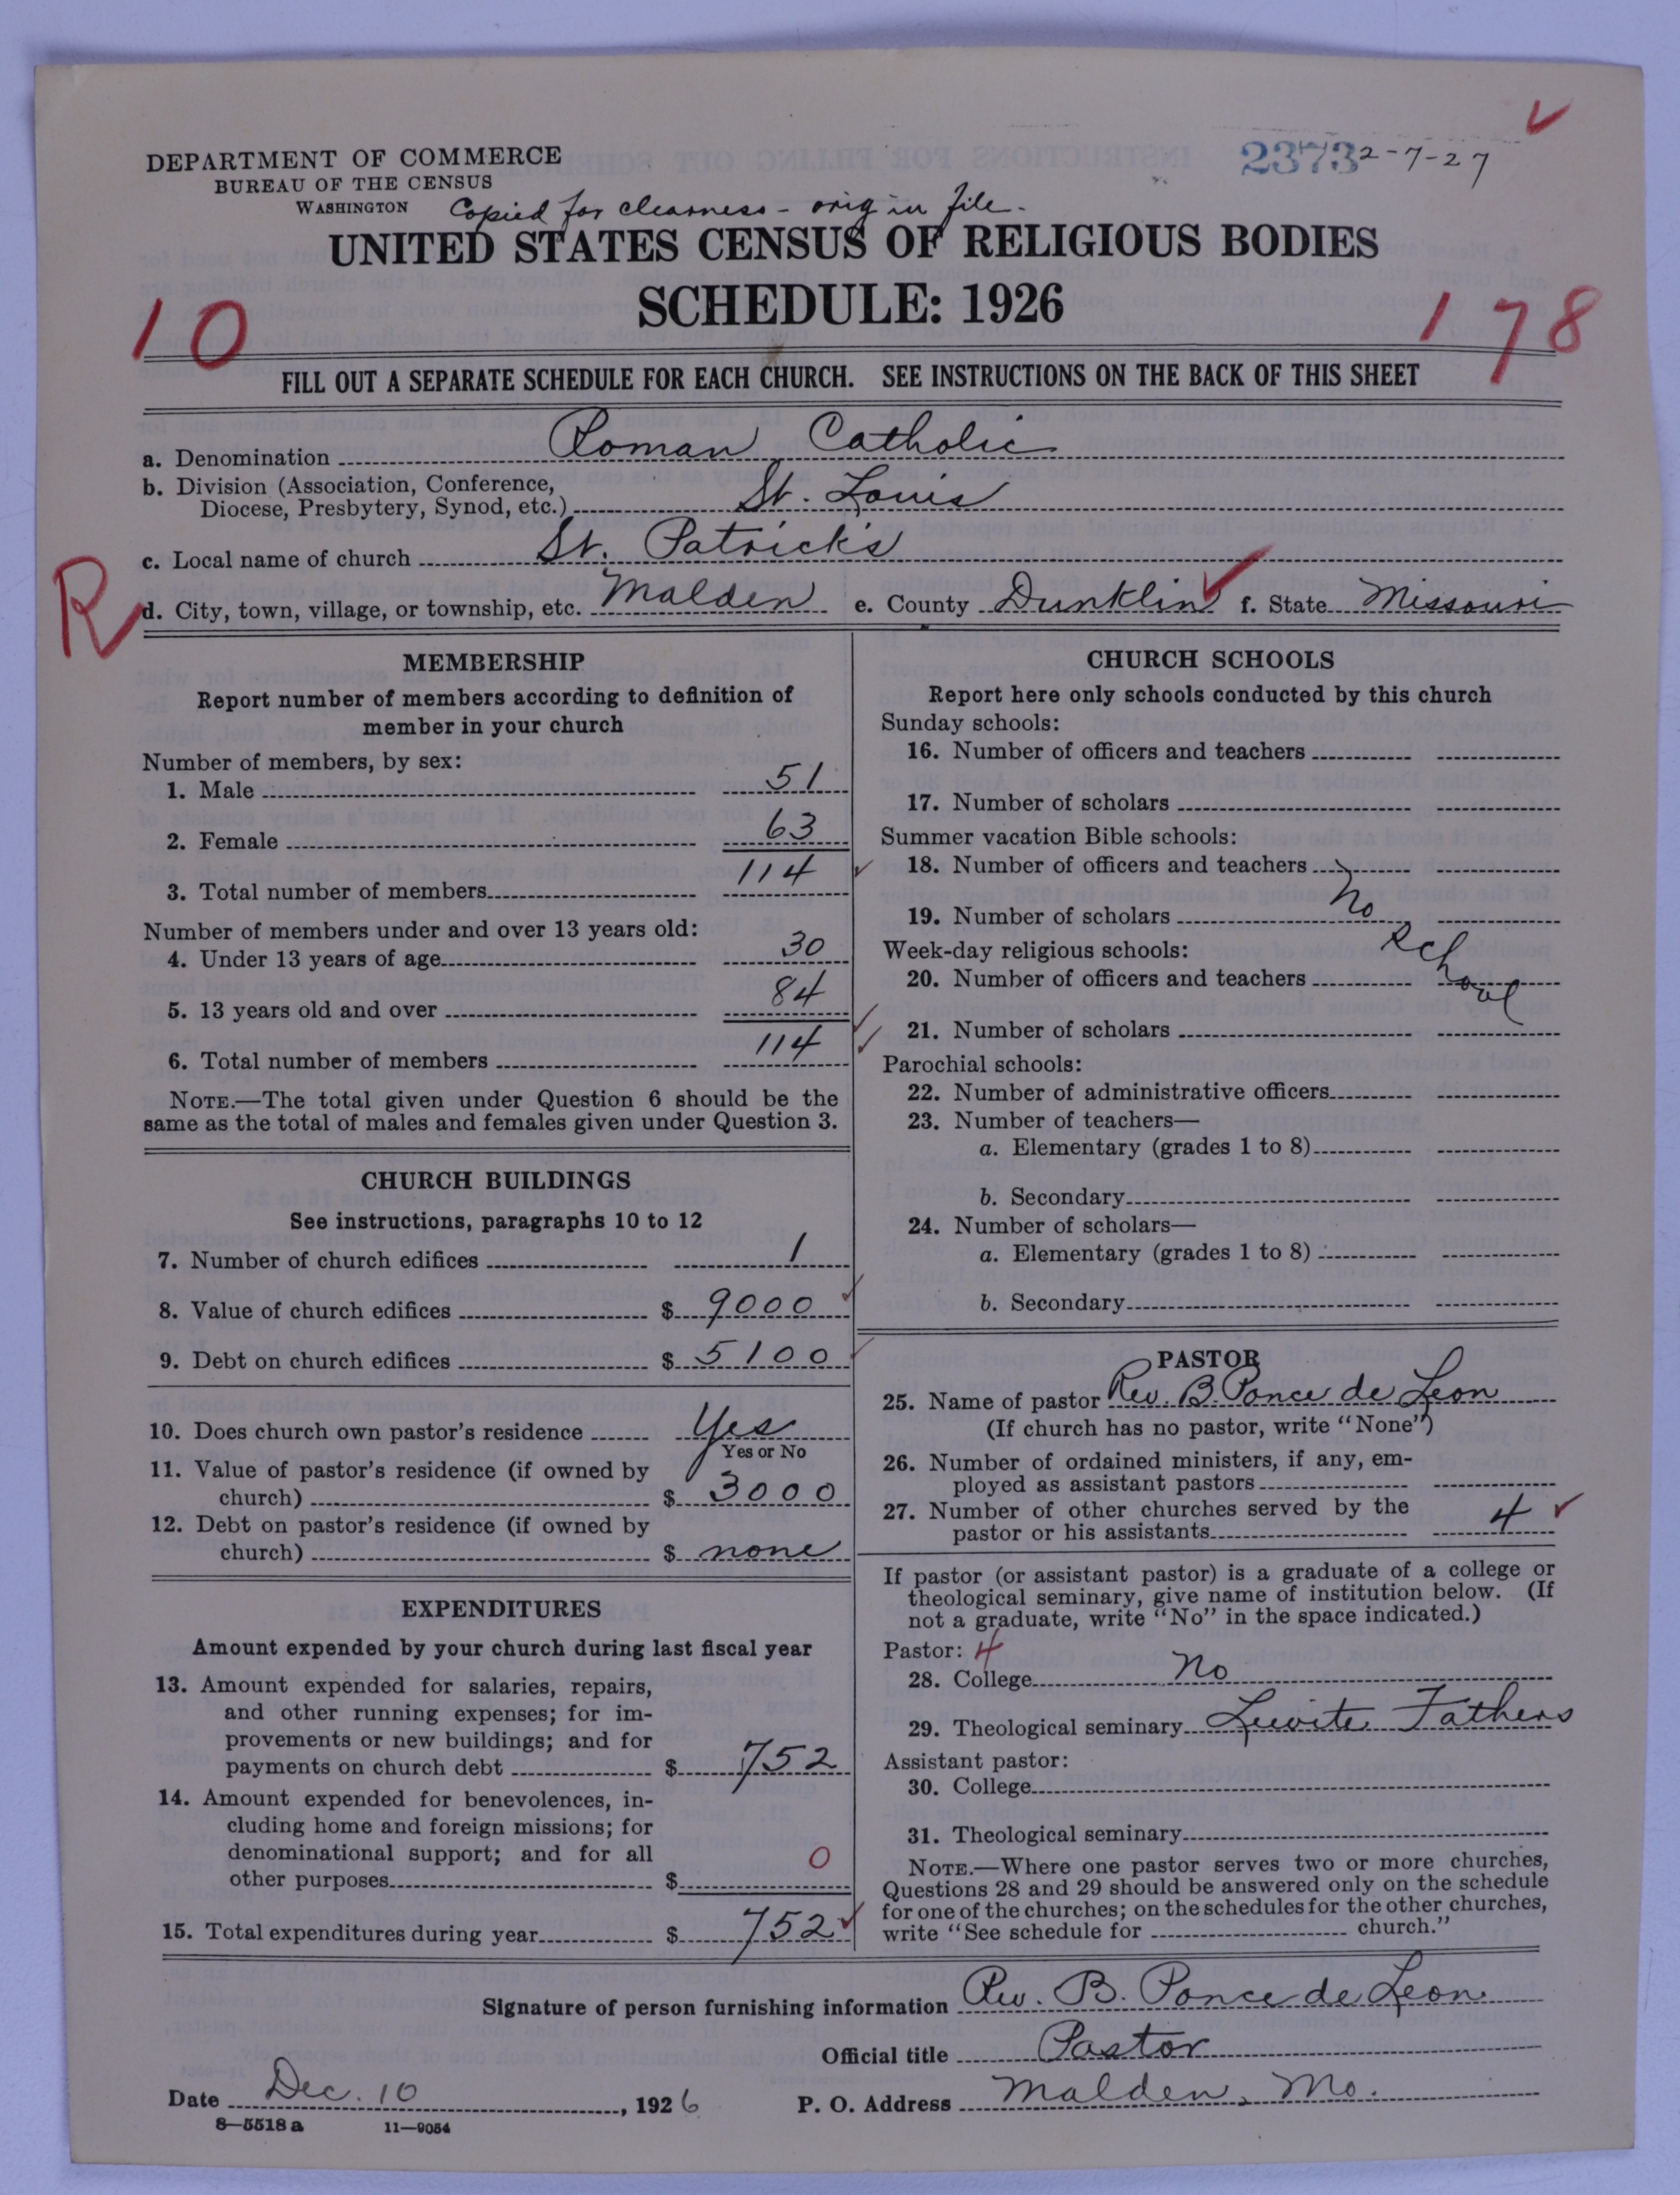 DEPARTMENT OF COMMERCE
BUREAU OF THE CENSUS
WASHINGTON
2373 2-7-27
Copied for clearness - orig in file.
UNITED STATES CENSUS OF RELIGIOUS BODIES
SCHEDULE: 1926
10
178
FILL OUT A SEPARATE SCHEDULE FOR EACH CHURCH. SEE INSTRUCTIONS ON THE BACK OF THIS SHEET
a. Denomination Roman Catholic
b. Division (Association, Conference,
Diocese, Presbytery, Synod, etc.) St. Louis
c. Local name of church St. Patrick's
R
d. City, town, village, or township, etc. Malden e. County Dunklin f. State Missouri
MEMBERSHIP
Report number of members according to definition of
member in your church
Number of members, by sex:
1. Male 51
2. Female 63
3. Total number of members 114
Number of members under and over 13 years old:
4. Under 13 years of age 30
5. 13 years old and over 84
6. Total number of members 114
NOTE.—The total given under Question 6 should be the
same as the total of males and females given under Question 3.
CHURCH BUILDINGS
See instructions, paragraphs 10 to 12
7. Number of church edifices 1
8. Value of church edifices $ 9000
9. Debt on church edifices $ 5100
10. Does church own pastor's residence Yes
Yes or No
11. Value of pastor's residence (if owned by
church) $ 3000
12. Debt on pastor's residence (if owned by
church) $ none
EXPENDITURES
Amount expended by your church during last fiscal year
13. Amount expended for salaries, repairs,
and other running expenses; for im-
provements or new buildings; and for
payments on church debt $ 752
14. Amount expended for benevolences, in-
cluding home and foreign missions; for
denominational support; and for all
other purposes $ 0
15. Total expenditures during year $ 752
CHURCH SCHOOLS
Report here only schools conducted by this church
Sunday schools:
16. Number of officers and teachers
17. Number of scholars
Summer vacation Bible schools:
18. Number of officers and teachers
19. Number of scholars No
Week-day religious schools: School
20. Number of officers and teachers
21. Number of scholars
Parochial schools:
22. Number of administrative officers
23. Number of teachers—
a. Elementary (grades 1 to 8)
b. Secondary
24. Number of scholars—
a. Elementary (grades 1 to 8)
b. Secondary
PASTOR
25. Name of pastor Rev. B. Ponce de Leon
(If church has no pastor, write "None")
26. Number of ordained ministers, if any, em-
ployed as assistant pastors
27. Number of other churches served by the
pastor or his assistants 4
If pastor (or assistant pastor) is a graduate of a college or
theological seminary, give name of institution below. (If
not a graduate, write "No" in the space indicated.)
Pastor: 4
28. College No
29. Theological seminary Fathers
Assistant pastor:
30. College
31. Theological seminary
NOTE.—Where one pastor serves two or more churches,
Questions 28 and 29 should be answered only on the schedule
for one of the churches; on the schedules for the other churches,
write "See schedule for church."
Signature of person furnishing information Rev. B. Ponce de Leon
Official title Pastor
Date Dec. 10, 1926 P. O. Address Malden, Mo.
8—5518 a 11—9054